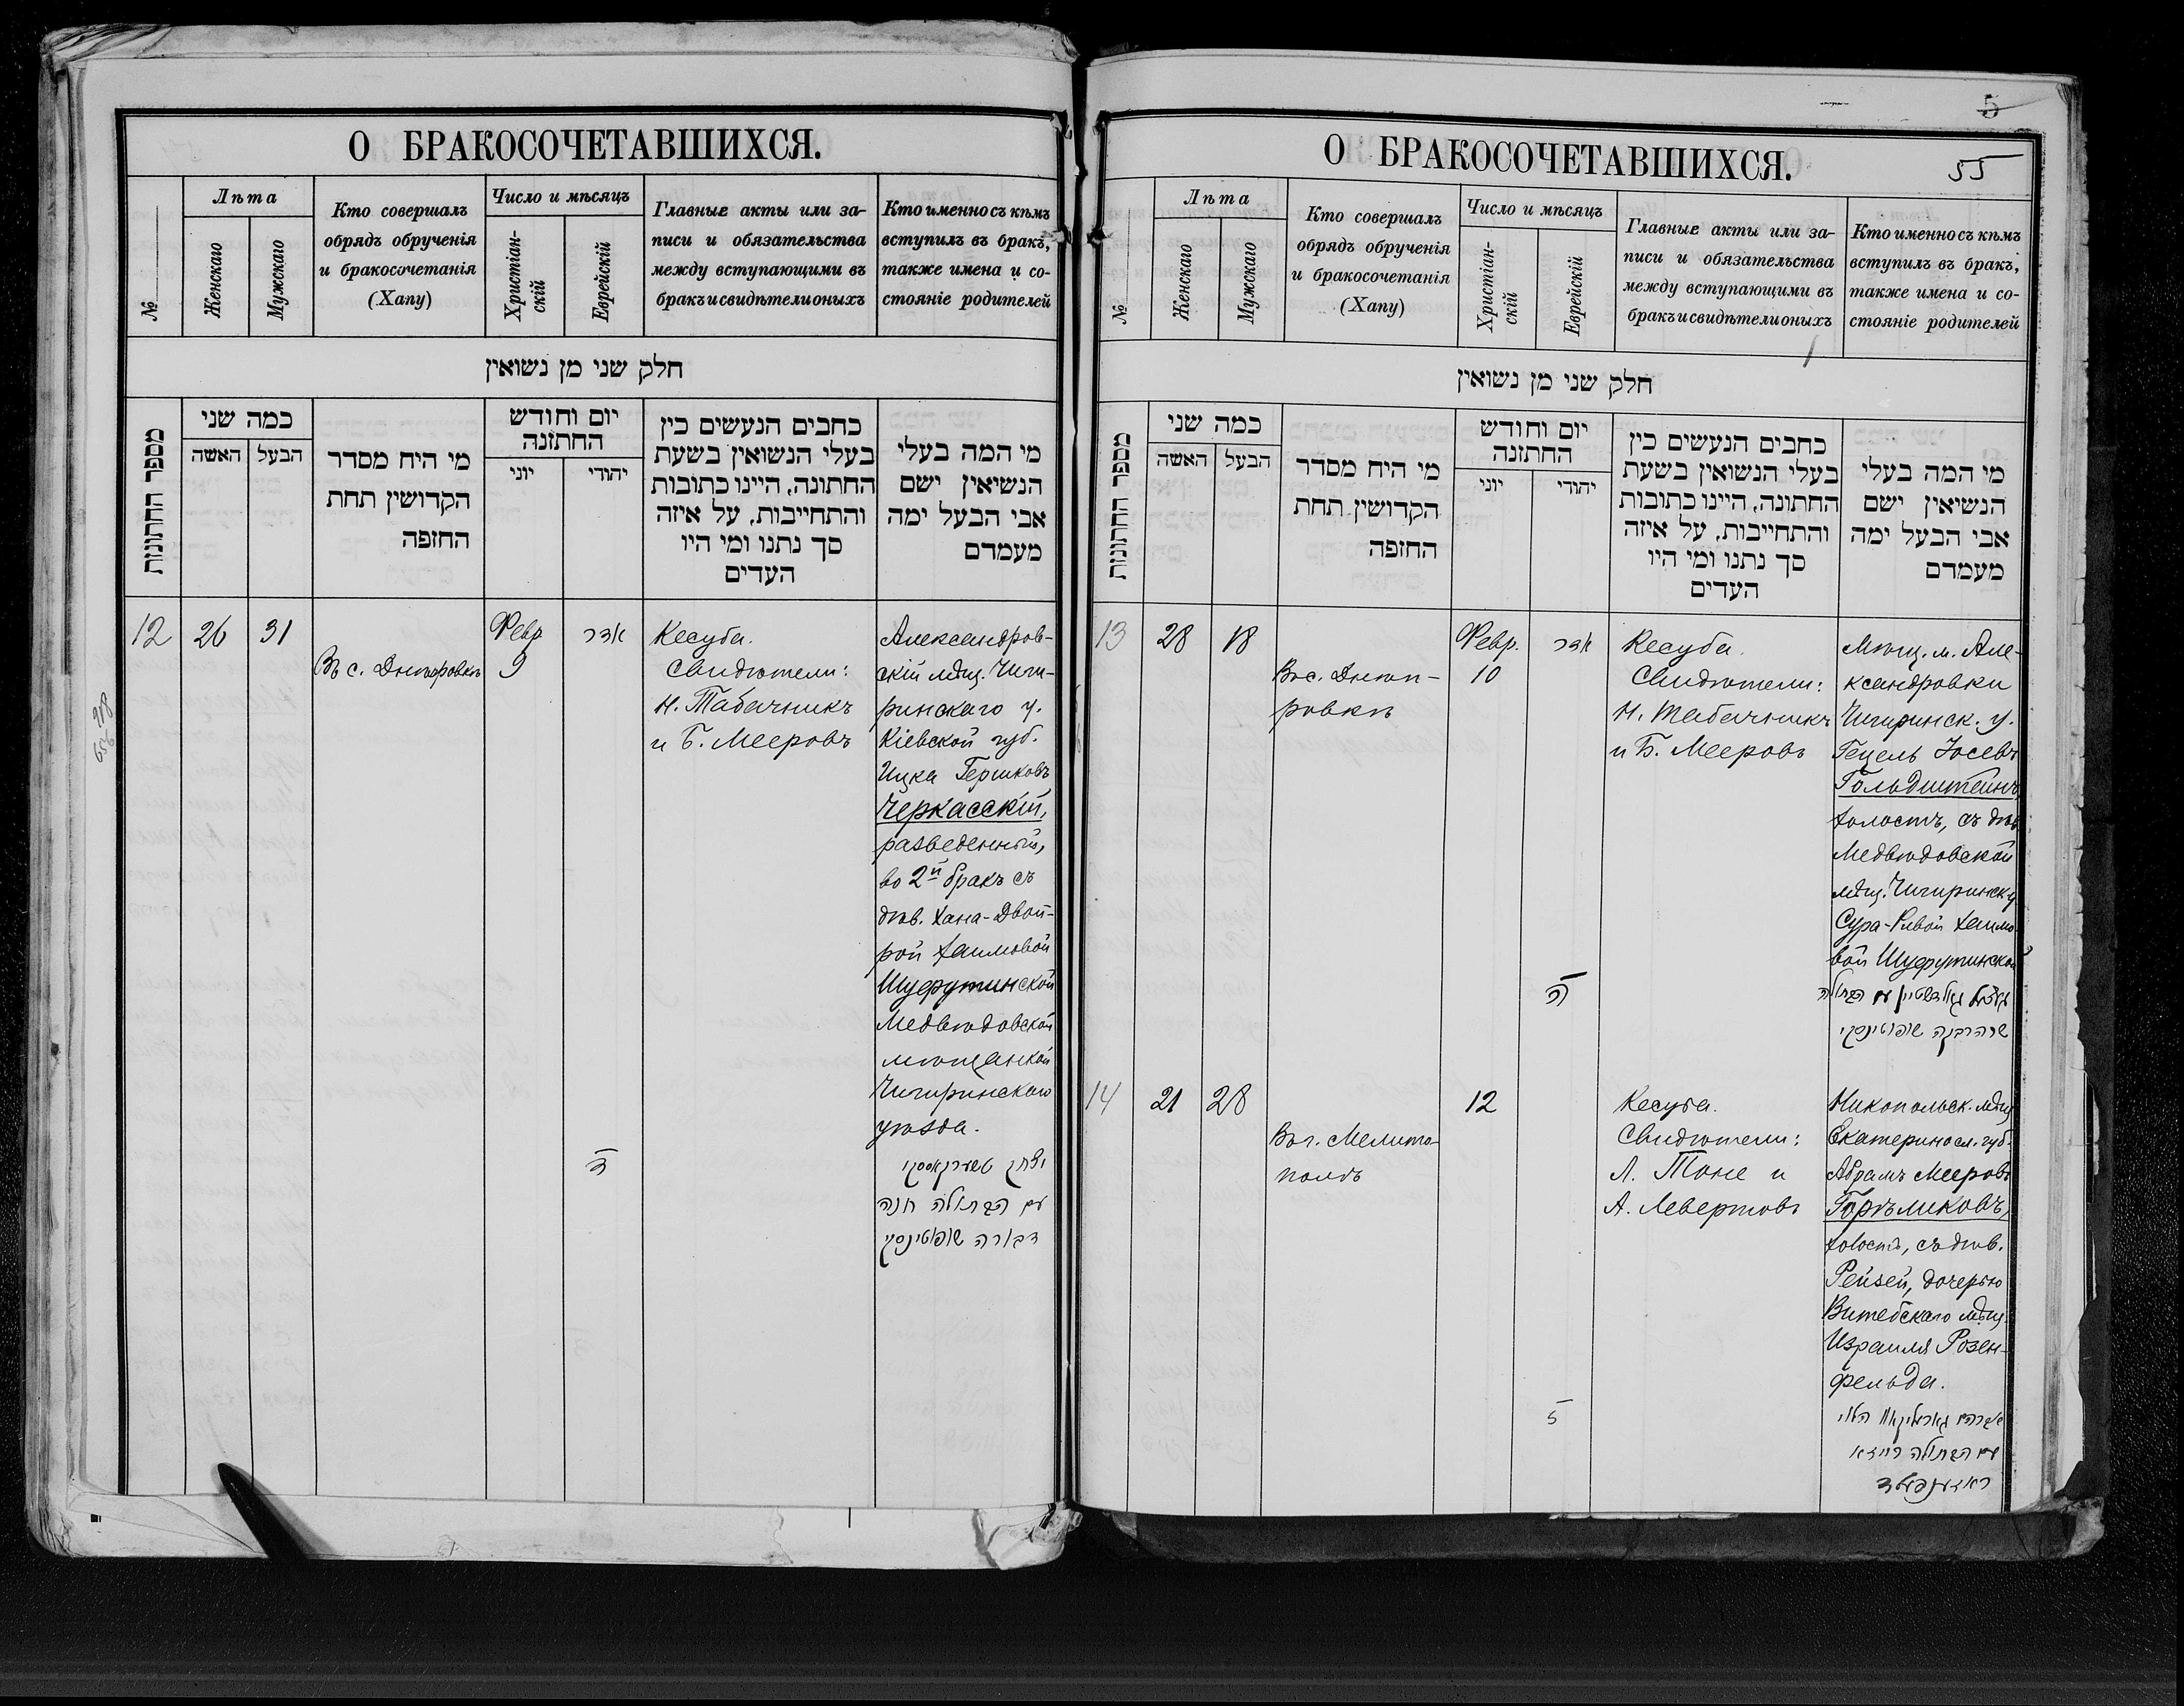 О БРАКОСОЧЕТАВШИХСЯ.
№
Лѣта
Женскаго
Мужскаго
Кто совершалъ
обрядъ обрученія
и бракосочетанія
(Хапу)
Число и мѣсяцъ
Христіан-
скій
Еврейскій
Главные акты или за-
писи и обязательства
между вступающими въ
бракъ и свидѣтели оныхъ
Кто именно съ кѣмъ
вступилъ въ бракъ,
также имена и со-
стояніе родителей
חלק שני מן נשואין
מספר החתונות
כמה שני
האשה
הבעל
מי היח מסדר
הקדושין תחת
החזפה
יום וחודש
החתזנה
יוני
יהודי
כחבים הנעשים כין
בעלי הנשואין בשעת
החתונה, היינו כתובות
והתחייבות, על איזה
סך נתנו ומי היו
העדים
מי המה בעלי
הנשיאין ישם
אבי הבעל ימה
מעמדם
12
26
31
Въ с. Днѣпровкѣ
Февр
9
אדר
ד
Кесуба.
Свидѣтели:
Н. Табачникъ
и Б. Мееровъ
Александров-
скій мѣщ. Чиги-
ринскаго у.
Кіевской губ.
Ицка Гершковъ
Черкасскій,
разведенный,
во 2й бракъ съ
дѣв. Хана-Двой-
рой Хаимовой
Шуфутинской
Медвѣдовской
мѣщанкой
Чигиринскаго
уѣзда.
יצחק טשערקאססקי
עם הבתולה חנה
דבורה שופוטינסקי
О БРАКОСОЧЕТАВШИХСЯ.
5
55
№
Лѣта
Женскаго
Мужскаго
Кто совершалъ
обрядъ обрученія
и бракосочетанія
(Хапу)
Число и мѣсяцъ
Христіан-
скій
Еврейскій
Главные акты или за-
писи и обязательства
между вступающими въ
бракъ и свидѣтели оныхъ
Кто именно съ кѣмъ
вступилъ въ бракъ,
также имена и со-
стояніе родителей
חלק שני מן נשואין
מספר החתונות
כמה שני
האשה
הבעל
מי היח מסדר
הקדושין תחת
החזפה
יום וחודש
החתזנה
יוני
יהודי
כחבים הנעשים כין
בעלי הנשואין בשעת
החתונה, היינו כתובות
והתחייבות, על איזה
סך נתנו ומי היו
העדים
מי המה בעלי
הנשיאין ישם
אבי הבעל ימה
מעמדם
13
28
18
Въ с. Днѣп-
ровкѣ
Февр.
10
אדר
ה
Кесуба.
Свидѣтели:
Н. Табачникъ
и Б. Мееровъ
Мѣщ. м. Але-
ксандровки
Чигиринск. у.
Гецель Іосевъ
Гольдштейнъ,
холостъ, съ дѣв
Медвѣдовской
мѣщ. Чигиринск. у
Сура-Ривой Хаимо
вой Шуфутинской
געצעל גאלדשטיין עם הבתולה
שרה רבקה שופוטינסקי
14
21
28
Въ г. Мелито-
полѣ
12
Кесуба.
Свидѣтели:
Л. Тоне и
А. Левертовъ
Никопольск. мѣщ
Екатеринос. губ.
Абрамъ Мееровъ
Горѣликовъ,
холостъ, съ дѣв.
Рейзей, дочерью
Витебскаго мѣщ.
Израиля Розен-
фельда.
אברהם גארעליקאוו הלוי
עם הבתולה רייזא
ראזענפעלד